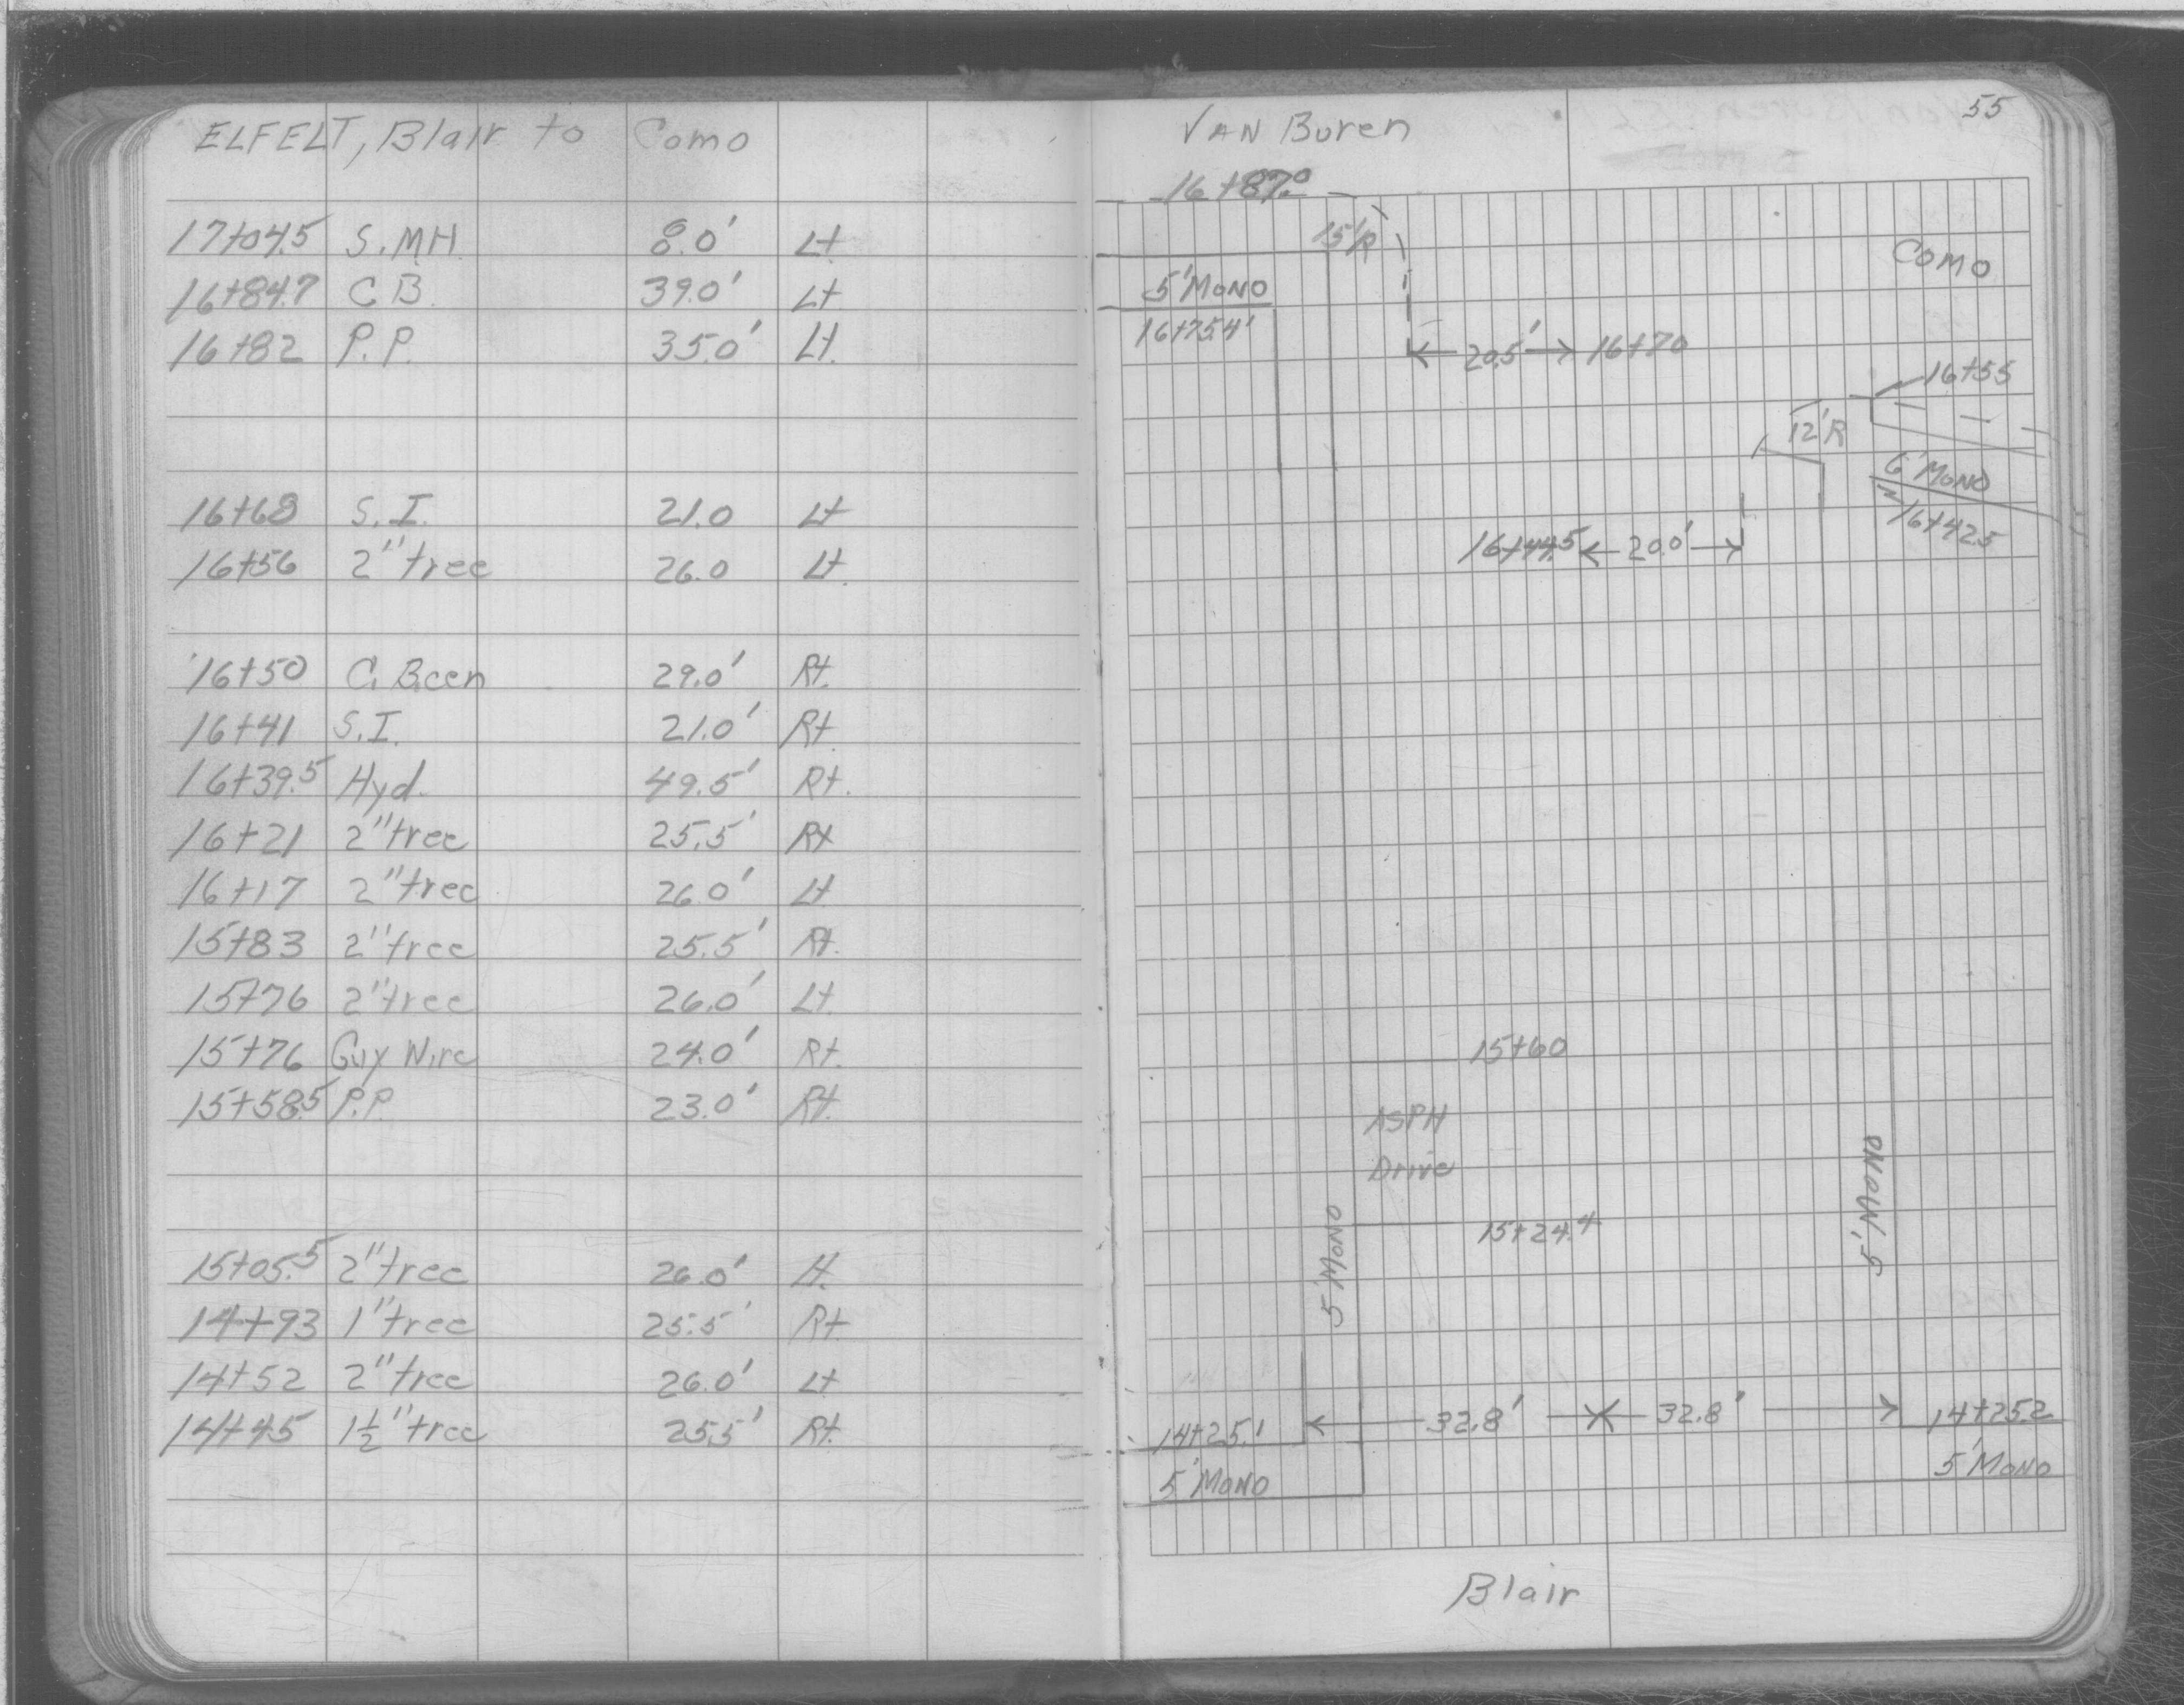 ELFELT, Blair to Como
17+04.5 S.MH. 8.0' Lt
16+84.7 C.B. 39.0' Lt
16+82 P.P. 35.0' Lt.
16+68 S.I. 21.0 Lt
16+56 2" tree 26.0 Lt.
16+50 C. B.cen 29.0' Rt.
16+41 S.I. 21.0' Rt.
16+39.5 Hyd. 49.5' Rt.
16+21 2" tree 25.5' Rt
16+17 2" tree 26.0' Lt
15+83 2" tree 25.5' Rt.
15+76 2" tree 26.0' Lt.
15+76 Guy Wire 24.0' Rt.
15+58.5 P.P. 23.0' Rt.
15+05.5 2" tree 26.0' Lt.
14+93 1" tree 25.5' Rt
14+52 2" tree 26.0' Lt
14+45 1½" tree 25.5' Rt.
55
VAN Buren
16+87.0
15'R
Como
5' MONO
16+75.4'
20.5' 16+70
16+55
12'R
6' MONO
16+42.5
16+44.5 20.0'
15+60
ASPH
Drive
15+24.4
5' MONO
5' MONO
14+25.1 32.8' 32.8' 14+25.2
5' MONO 5' MONO
Blair